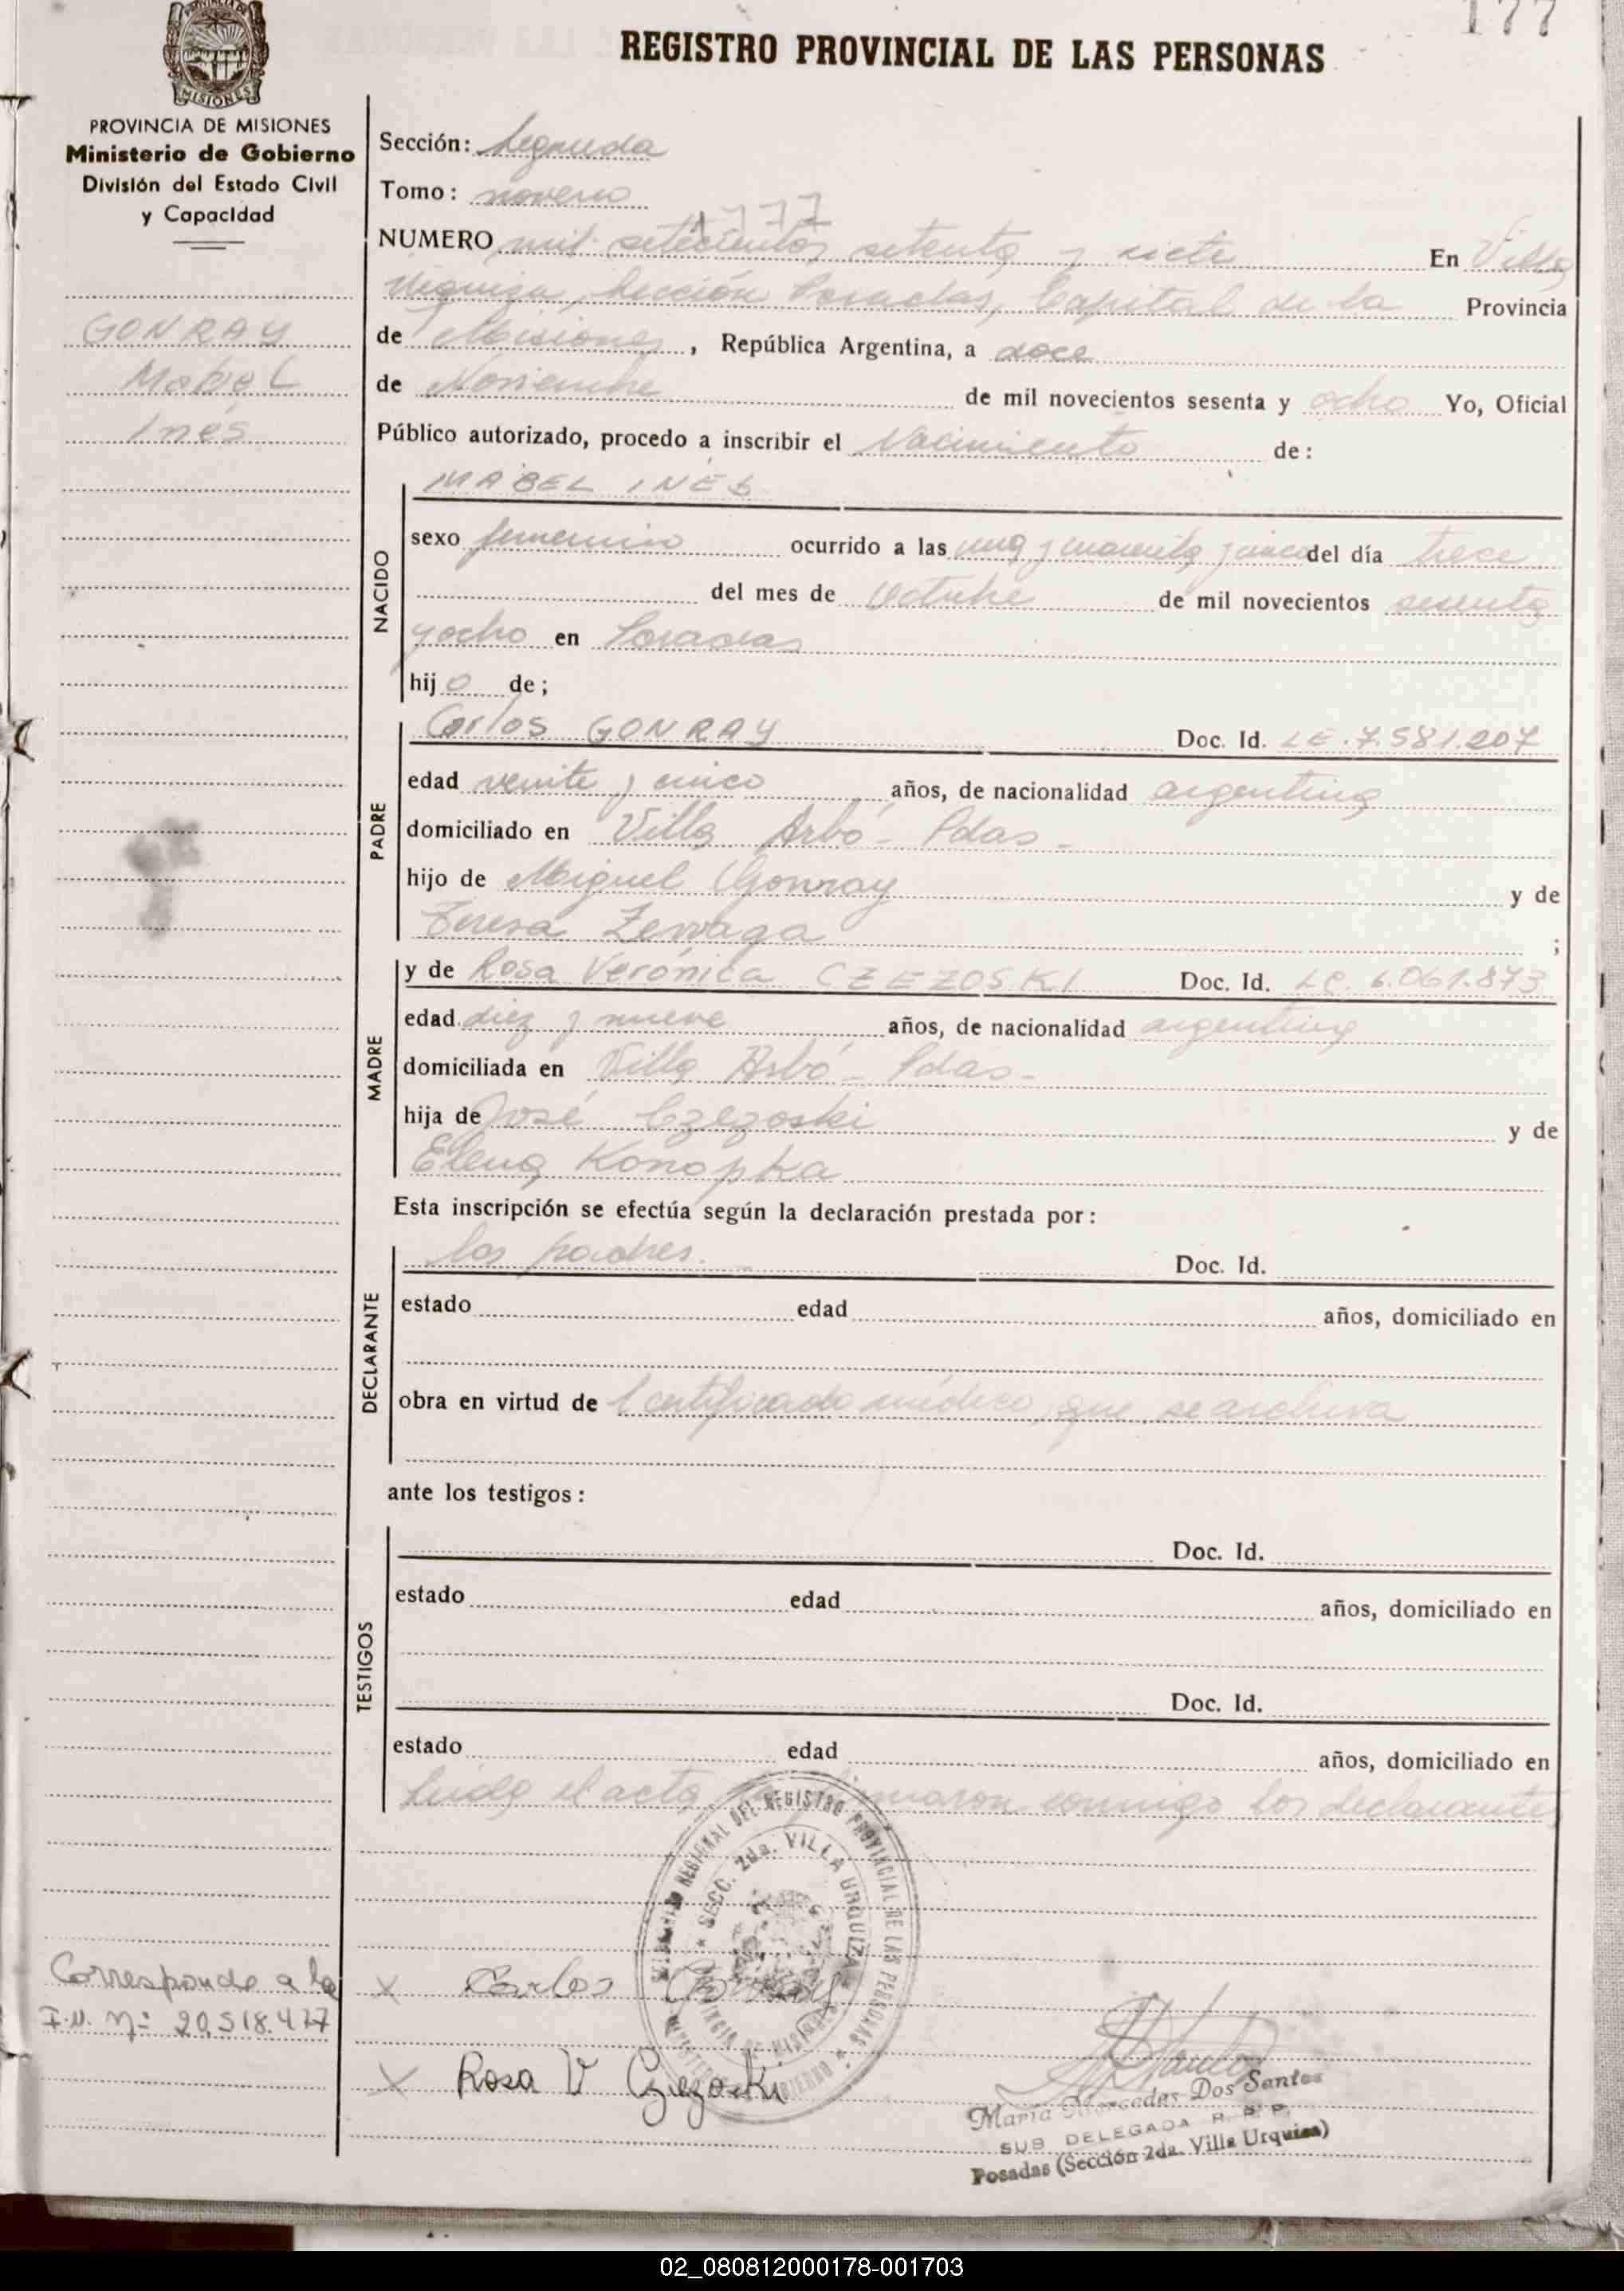 177
REGISTRO PROVINCIAL DE LAS PERSONAS
MISIONES
PROVINCIA DE MISIONES
Ministerio de Gobierno
División del Estado Civil
y Capacidad
GONRAY
Mabel
Inés
Sección: Segunda
Tomo: noveno
1777
NUMERO mil setecientos setenta y siete En Villa
Urquiza, Sección Posadas, Capital de la Provincia
de Misiones, República Argentina, a doce
de Noviembre de mil novecientos sesenta y ocho Yo, Oficial
Público autorizado, procedo a inscribir el Nacimiento de:
NACIDO
MABEL INÉS
sexo femenino ocurrido a las una y cuarenta y cinco del día trece
del mes de Octubre de mil novecientos sesenta
y ocho en Posadas
hijo de;
PADRE
Carlos GONRAY Doc. Id. LE.7.581.207
edad veinte y cinco años, de nacionalidad argentina
domiciliado en Villa Arbó - Pdas -
hijo de Miguel Gonray y de
Teresa Zewaga ;
MADRE
y de Rosa Verónica CZEZOSKI Doc. Id. LC. 6.061.873
edad diez y nueve años, de nacionalidad argentina
domiciliada en Villa Arbó - Pdas -
hija de José Czezoski y de
Elena Konopka
Esta inscripción se efectúa según la declaración prestada por:
DECLARANTE
los padres. Doc. Id.
estado edad años, domiciliado en
obra en virtud de certificado médico, que se archiva
ante los testigos:
TESTIGOS
Doc. Id.
estado edad años, domiciliado en
Doc. Id.
estado edad años, domiciliado en
Leída el acta firmaron conmigo los declarantes
REGIONAL DEL REGISTRO PROVINCIAL DE LAS PERSONAS
SECC. 2da. VILLA URQUIZA
PROVINCIA DE MISIONES
Corresponde a la
I.N. Nº 20.518.477
X Carlos Gonray
X Rosa V Czezoski
Maria Mercedes Dos Santos
SUB DELEGADA R. P. P.
Posadas (Sección 2da. Villa Urquiza)
02_080812000178-001703